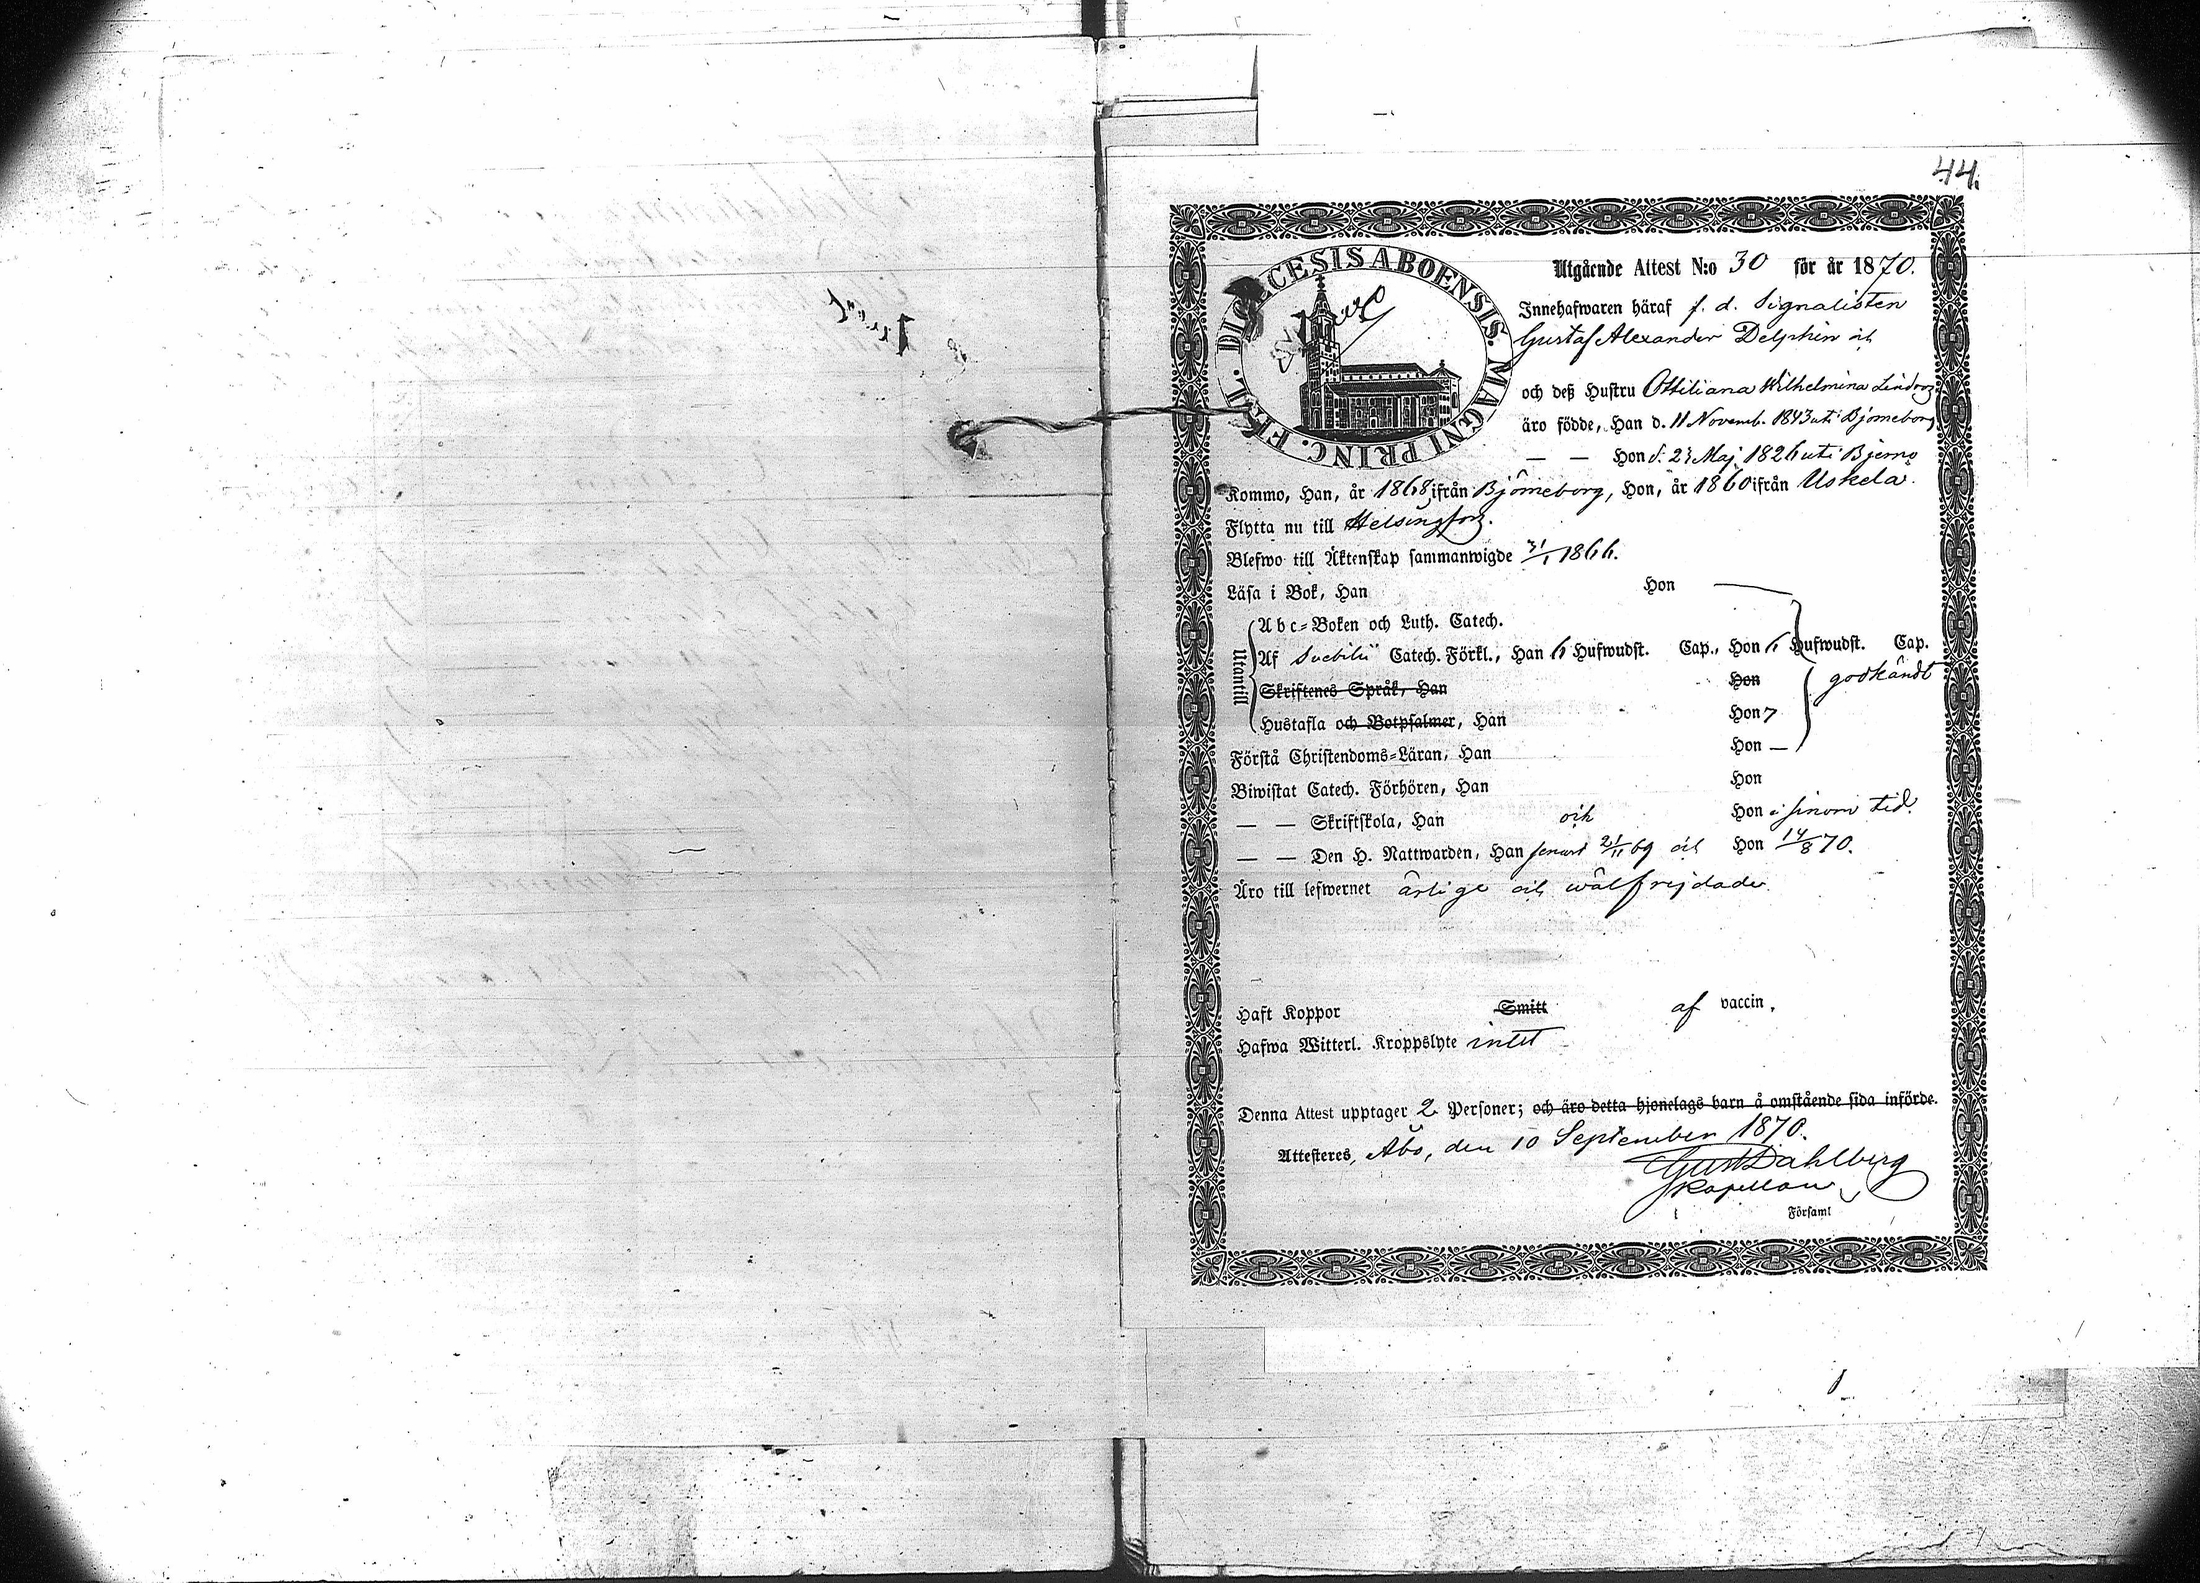 44.
DIOECESIS ABOENSIS. MAGNI PRINC. FINL.
Utgående Attest N:o 30 för år 1870.
Innehafwaren häraf f. d. Signalisten
Gustaf Alexander Delphin och
och deß Hustru Ottiliana Wilhelmina
äro födde, Han d. 11 Novemb. 1843 uti Björneborg
— — Hon d. 23 Maj 1826 uti Bjerno
Kommo, Han, år 1868 ifrån Björneborg, Hon, år 1860 ifrån Uskela.
Flytta nu till Helsingfors.
Blefwo till Äktenskap sammanwigde 31/1 1866.
Läsa i Bok, Han Hon —
Abc-Boken och Luth. Catech.
Utantill
Af Svebilii Catech. Förkl., Han 6 Hufwudst. Cap., Hon 6 Hufwudst. Cap.
Skriftenes Språk, Han Hon godkändt
Hustafla och Botpsalmer, Han Hon
Förstå Christendoms-Läran, Han Hon —
Biwistat Catech. Förhören, Han Hon
— — Skriftskola, Han och Hon i sinom tid.
— — Den H. Nattwarden, Han senast 21/11 69 och Hon 14/8 70.
Äro till lefwernet ärlige och wälfrejdade.
Haft Koppor Smitt af vaccin.
Hafwa Witterl. Kroppslyte intet
Denna Attest upptager 2 Personer; och äro detta hjonelags barn å omstående sida införde.
Attesteres, Åbo, den 10 September 1870.
Gust Dahlberg
Kapellan
i Församl